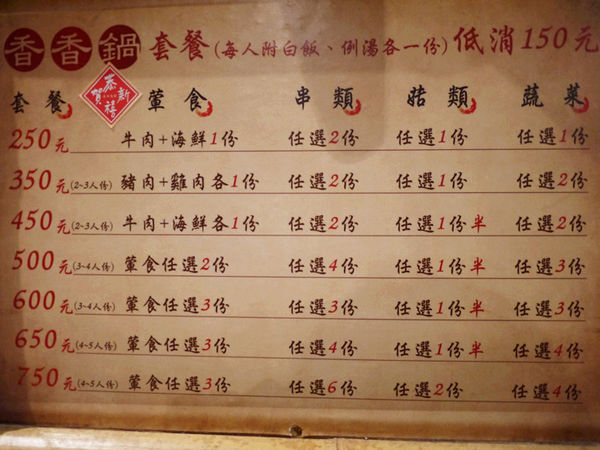 香香鍋 套餐(每人附白飯、例湯各一份)低消150元
恭賀新禧
套餐 葷食 串類 菇類 蔬菜
250元 牛肉+海鮮1份 任選2份 任選1份 任選1份
350元(2~3人份) 豬肉+雞肉各1份 任選2份 任選1份 任選2份
450元(2~3人份) 牛肉+海鮮各1份 任選2份 任選1份半 任選2份
500元(3~4人份) 葷食任選2份 任選4份 任選1份半 任選2份
600元(3~4人份) 葷食任選3份 任選3份 任選1份半 任選3份
650元(4~5人份) 葷食任選3份 任選4份 任選1份半 任選4份
750元(4~5人份) 葷食任選3份 任選6份 任選2份 任選4份